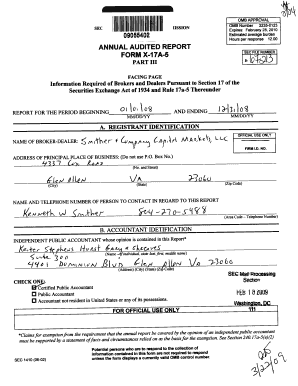 SEC
09055402
ISSION
OMB APPROVAL
OMB Number: 3235-0123
Expires: February 28, 2010
Estimated average burden
hours per response 12.00
ANNUAL AUDITED REPORT
FORM X-17A-5
PART III
SEC FILE NUMBER
FACING PAGE
Information Required of Brokers and Dealers Pursuant to Section 17 of the
Securities Exchange Act of 1934 and Rule 17a-5 Thereunder
REPORT FOR THE PERIOD BEGINNING 01/01/08 AND ENDING 12/31/08
MM/DD/YY MM/DD/YY
A. REGISTRANT IDENTIFICATION
NAME OF BROKER-DEALER: Smither + Company Capital Markets, LLC
OFFICIAL USE ONLY
ADDRESS OF PRINCIPAL PLACE OF BUSINESS: (Do not use P.O. Box No.)
FIRM I.D. NO.
4357 Cox Road
(No. and Street)
Glen Allen VA 23060
(City) (State) (Zip Code)
NAME AND TELEPHONE NUMBER OF PERSON TO CONTACT IN REGARD TO THIS REPORT
Kenneth W Smither 804-270-5488
(Area Code - Telephone Number)
B. ACCOUNTANT IDENTIFICATION
INDEPENDENT PUBLIC ACCOUNTANT whose opinion is contained in this Report*
Keiter Stephens Hurst Gary + Shreaves
(Name - if individual, state last, first, middle name)
Suite 300
4401 Dominion Blvd Glen Allen VA 23060
(Address) (City) (State) (Zip Code)
CHECK ONE:
Certified Public Accountant
Public Accountant
Accountant not resident in United States or any of its possessions.
SEC Mail Processing
Section
FEB 18 2009
Washington, DC
111
FOR OFFICIAL USE ONLY
*Claims for exemption from the requirement that the annual report be covered by the opinion of an independent public accountant
must be supported by a statement of facts and circumstances relied on as the basis for the exemption. See Section 240.17a-5(e)(2)
SEC 1410 (06-02)
Potential persons who are to respond to the collection of
information contained in this form are not required to respond
unless the form displays a currently valid OMB control number.